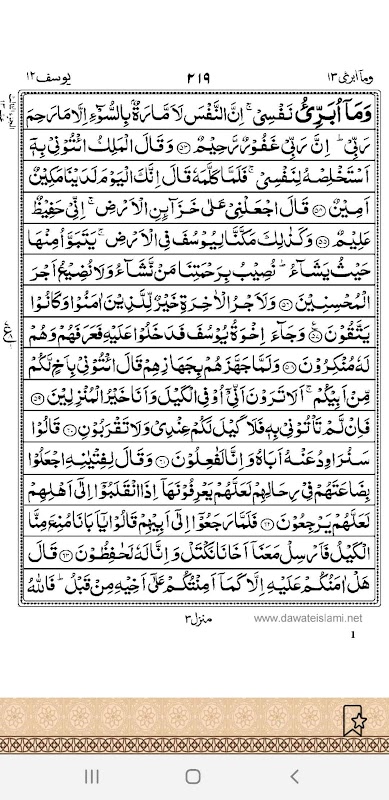 وماابرئ ١٣ ٢١٩ يوسف ١٢
وَمَآ اُبَرِّئُ نَفۡسِىۡ‌ۚ اِنَّ النَّفۡسَ لَاَمَّارَةٌۢ بِالسُّوۡٓءِ اِلَّا مَا رَحِمَ
رَبِّىۡ ؕ اِنَّ رَبِّىۡ غَفُوۡرٌ رَّحِيۡمٌ ‏﴿۵۳﴾‏ وَقَالَ الۡمَلِكُ ائۡتُوۡنِىۡ بِهٖۤ
اَسۡتَخۡلِصۡهُ لِنَفۡسِىۡ‌ۚ فَلَمَّا كَلَّمَهٗ قَالَ اِنَّكَ الۡيَوۡمَ لَدَيۡنَا مَكِيۡنٌ
اَمِيۡنٌ ‏﴿۵۴﴾‏ قَالَ اجۡعَلۡنِىۡ عَلٰى خَزَآٮِٕنِ الۡاَرۡضِ‌ۚ اِنِّىۡ حَفِيۡظٌ
عَلِيۡمٌ ‏﴿۵۵﴾‏ وَكَذٰلِكَ مَكَّنَّا لِيُوۡسُفَ فِى الۡاَرۡضِ‌ۚ يَتَبَوَّاُ مِنۡهَا
حَيۡثُ يَشَآءُ‌ ؕ نُصِيۡبُ بِرَحۡمَتِنَا مَنۡ نَّشَآءُ‌ وَلَا نُضِيۡعُ اَجۡرَ
الۡمُحۡسِنِيۡنَ ‏﴿۵۶﴾‏ وَلَاَجۡرُ الۡاٰخِرَةِ خَيۡرٌ لِّـلَّذِيۡنَ اٰمَنُوۡا وَكَانُوۡا
يَتَّقُوۡنَ ‏﴿۵۷﴾‏ وَجَآءَ اِخۡوَةُ يُوۡسُفَ فَدَخَلُوۡا عَلَيۡهِ فَعَرَفَهُمۡ وَهُمۡ
لَهٗ مُنۡكِرُوۡنَ ‏﴿۵۸﴾‏ وَ لَمَّا جَهَّزَهُمۡ بِجَهَازِهِمۡ قَالَ ائۡتُوۡنِىۡ بِاَخٍ لَّكُمۡ
مِّنۡ اَبِيۡكُمۡ‌ۚ اَلَا تَرَوۡنَ اَنِّىۡۤ اُوۡفِى الۡكَيۡلَ وَاَنَا خَيۡرُ الۡمُنۡزِلِيۡنَ ‏﴿۵۹﴾‏
فَاِنۡ لَّمۡ تَاۡتُوۡنِىۡ بِهٖ فَلَا كَيۡلَ لَـكُمۡ عِنۡدِىۡ وَلَا تَقۡرَبُوۡنِ‏ ﴿۶۰﴾‏ قَالُوۡا
سَنُرَاوِدُ عَنۡهُ اَبَاهُ وَاِنَّا لَفٰعِلُوۡنَ‏ ﴿۶۱﴾‏ وَقَالَ لِفِتۡيٰنِهِ اجۡعَلُوۡا
بِضَاعَتَهُمۡ فِىۡ رِحَالِهِمۡ لَعَلَّهُمۡ يَعۡرِفُوۡنَهَاۤ اِذَا انْقَلَبُوۡۤا اِلٰٓى اَهۡلِهِمۡ
لَعَلَّهُمۡ يَرۡجِعُوۡنَ‏ ﴿۶۲﴾‏ فَلَمَّا رَجَعُوۡۤا اِلٰٓى اَبِيۡهِمۡ قَالُوۡا يٰۤاَبَانَا مُنِعَ مِنَّا
الۡكَيۡلُ فَاَرۡسِلۡ مَعَنَاۤ اَخَانَا نَكۡتَلۡ وَاِنَّا لَهٗ لَحٰـفِظُوۡنَ‏ ﴿۶۳﴾‏ قَالَ
هَلۡ اٰمَنُكُمۡ عَلَيۡهِ اِلَّا كَمَاۤ اَمِنۡتُكُمۡ عَلٰٓى اَخِيۡهِ مِنۡ قَبۡلُ‌ ؕ فَاللّٰهُ
منزل ٣ www.dawateislami.net
1